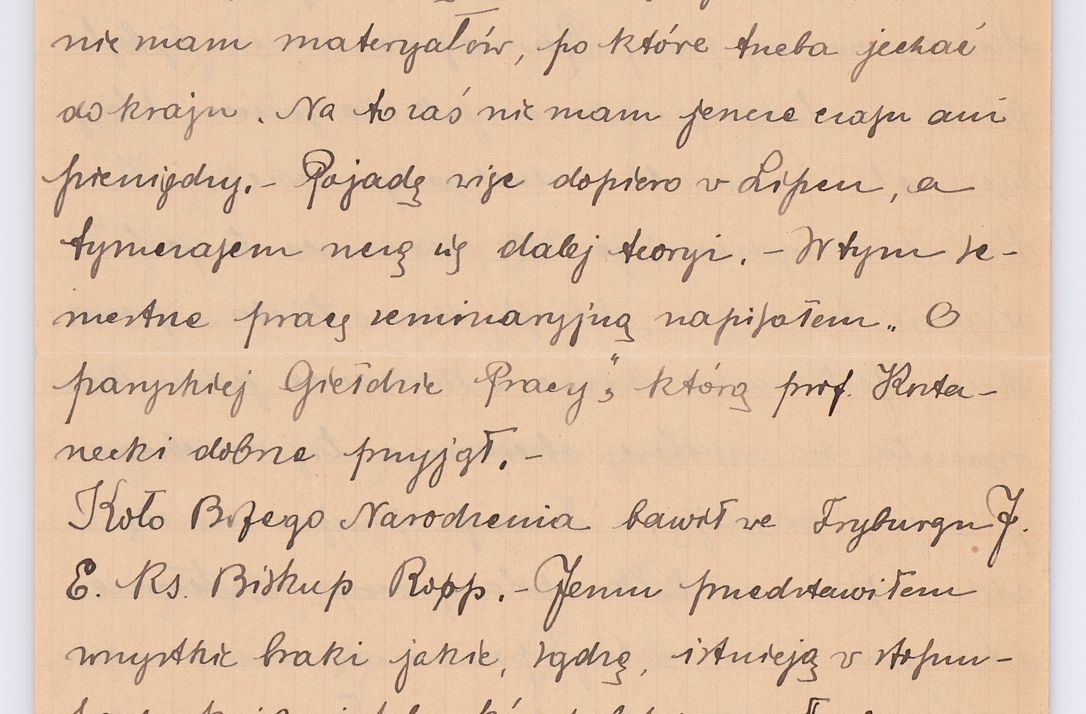 nie mam materyałów, po które trzeba jechać
do kraju. Na to zaś nie mam jeszcze czasu ani
pieniędzy. – Pojadę więc dopiero v Lipcu, a
tymczasem uczę się dalej teoryi. – W tym se-
mestrze pracę seminaryjną napisałem „O
paryskiej Giełdzie Pracy”, którą prof. Kosta-
necki dobrze przyjął. –
Koło Bożego Narodzenia bawił ve Fryburgu J.
E. Ks. Biskup Ropp. – Jemu przedstawiłem
wszystkie braki jakie, sądzę, istnieją v stosun-